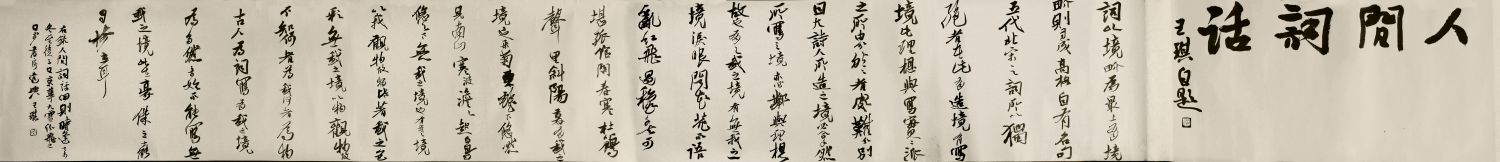 人間詞話
王琪自题
詞以境界為最上有境
界則自成高格自有名句
五代北宋之詞所以獨
絕者在此有造境有寫
境此理想與寫實二派
之所由分然二者頗難分別
因大詩人所造之境必合乎自然
所寫之境亦必鄰於理想
故也有有我之境有無我之
境淚眼問花花不語
亂紅飛過鞦韆去可
堪孤館閉春寒杜鵑
聲里斜陽暮有我之
境也采菊東籬下悠然
見南山寒波澹澹起白鳥
悠悠下無我之境也有我之境
以我觀物故物皆著我之色
彩無我之境以物觀物故
不知何者為我何者為物
古人為詞寫有我之境
者為多然未始不能寫無
我之境此在豪傑之士能
自樹立耳
右錄人間詞話四則時
王琪